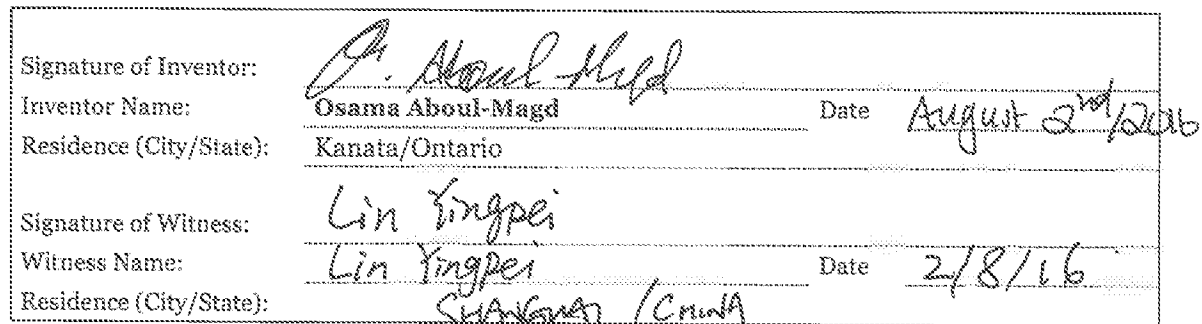 Signature of Inventor: O. Aboul-Magd
Inventor Name: Osama Aboul-Magd Date August 2nd/2016
Residence (City/State): Kanata/Ontario
Signature of Witness: Lin Yingpei
Witness Name: Lin Yingpei Date 2/8/16
Residence (City/State): SHANGHAI / CHINA